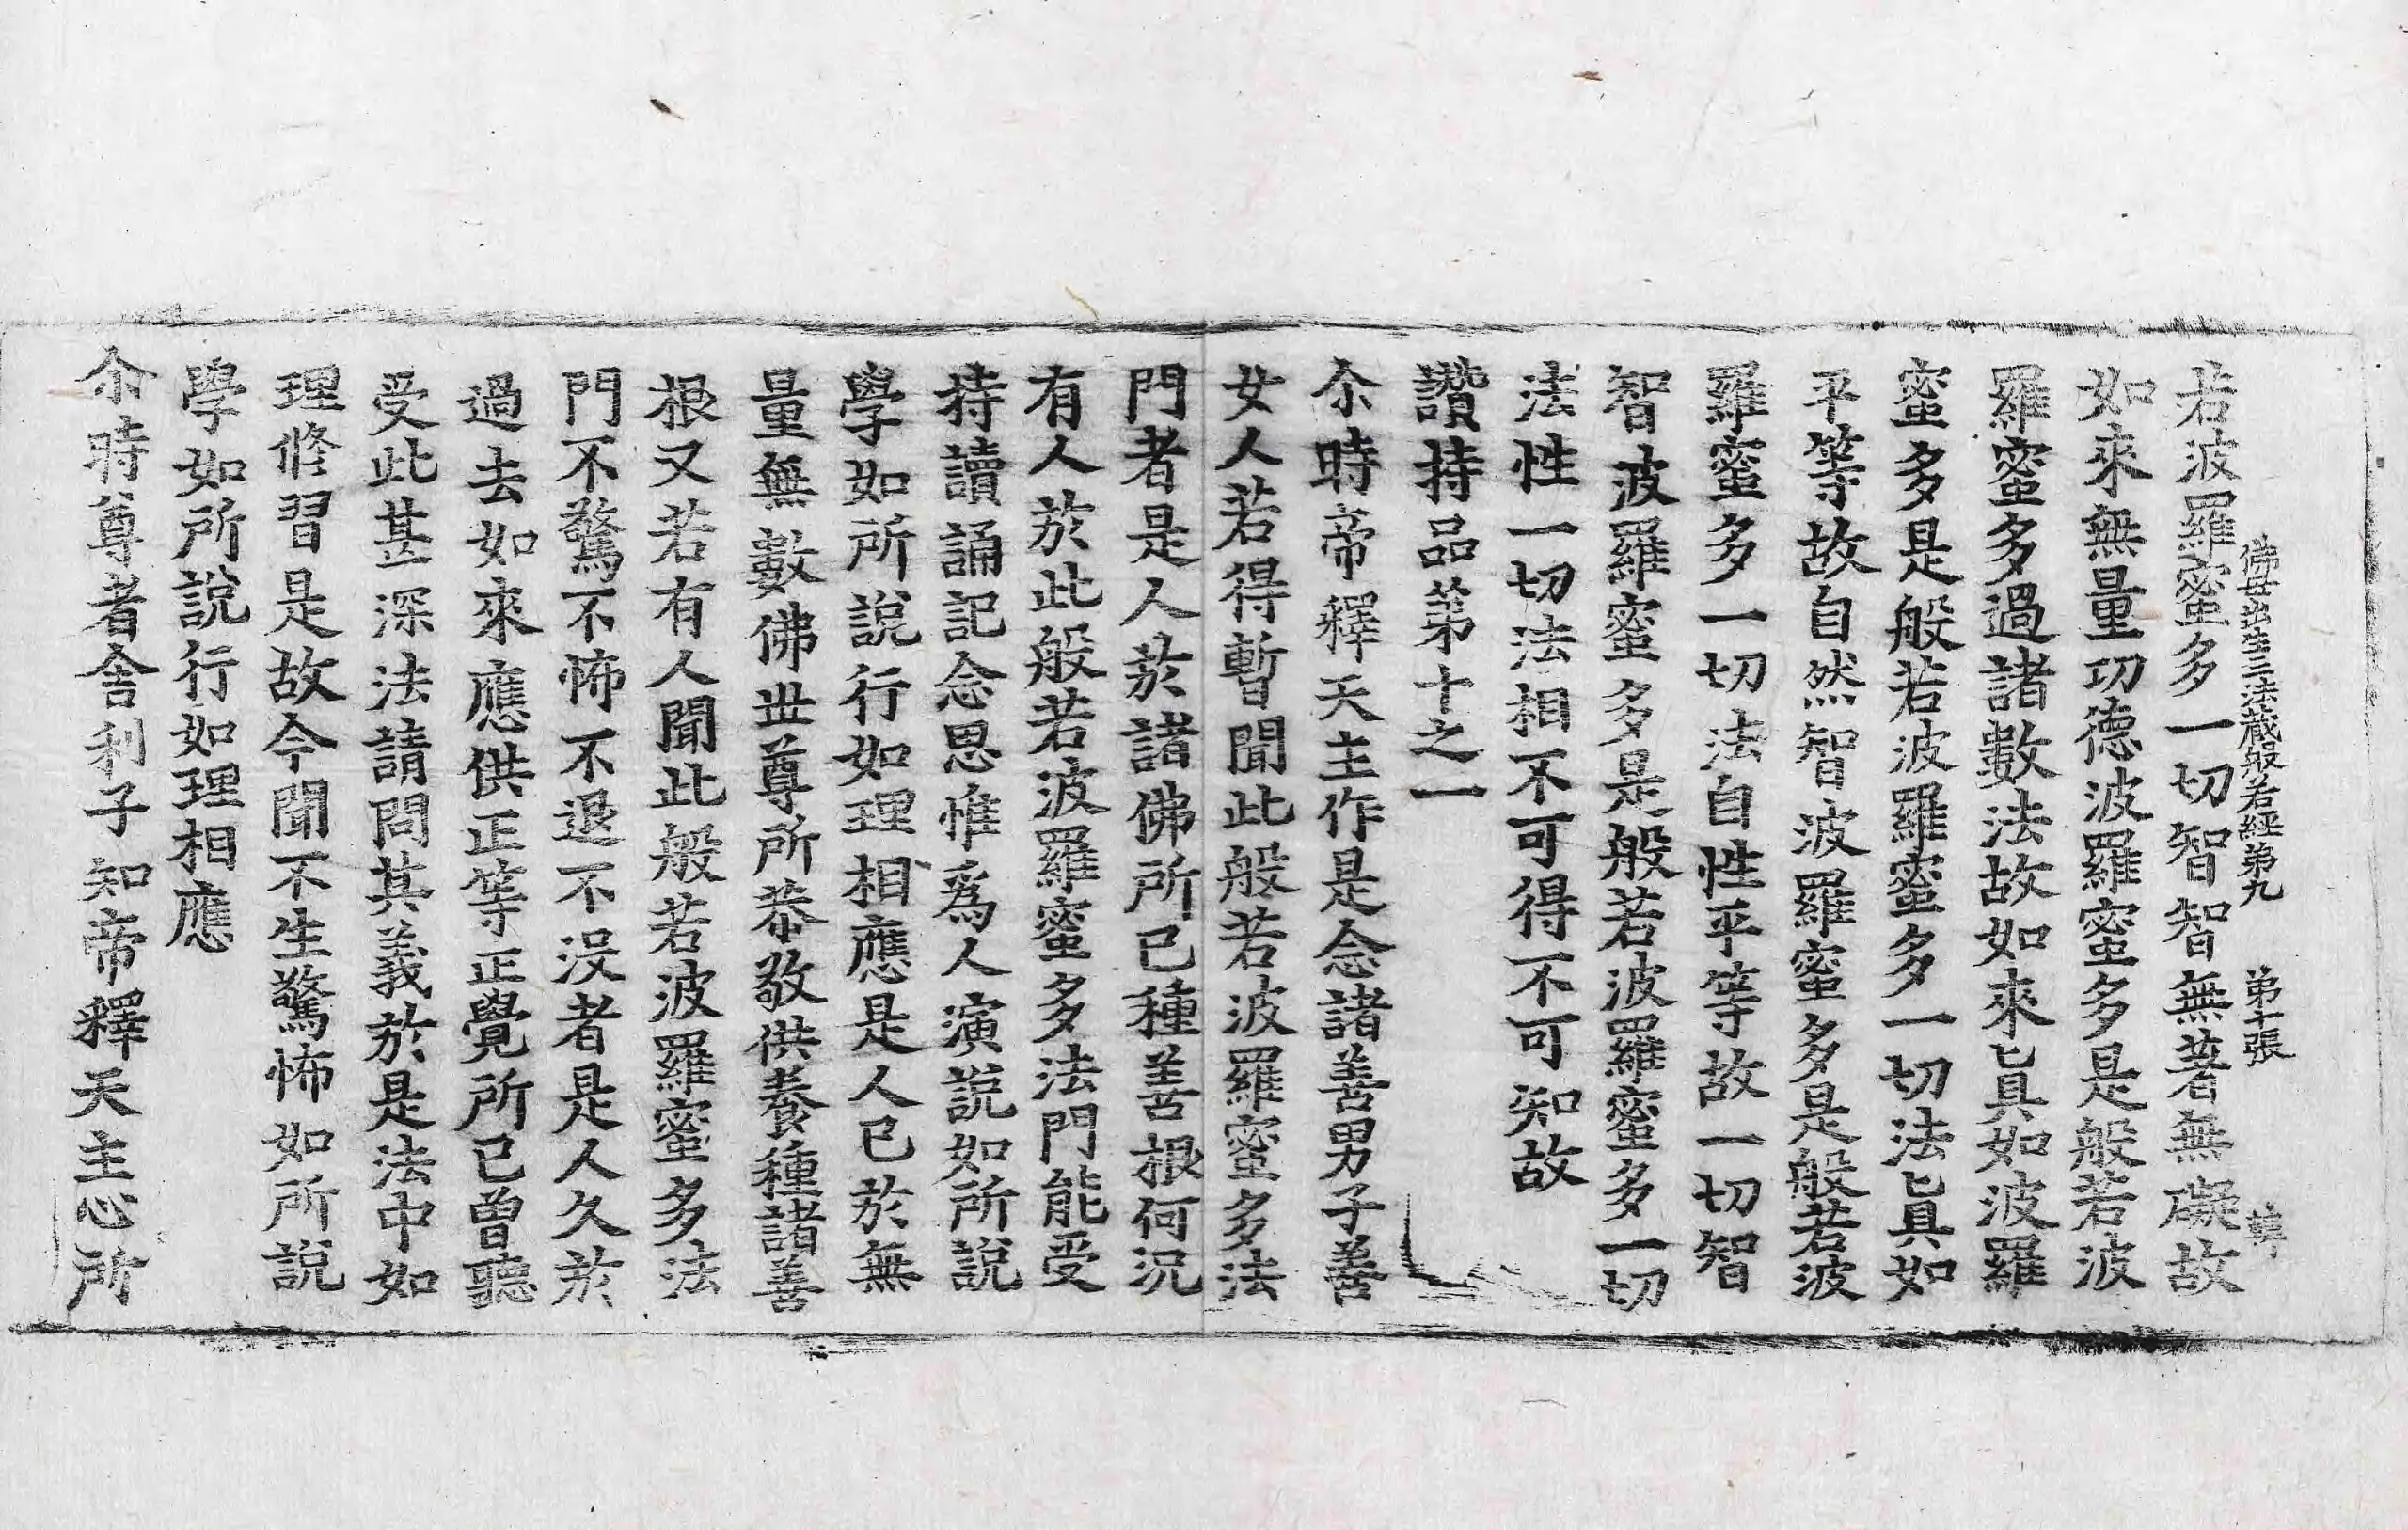 佛母出生三法藏般若經第九 第十張
若波羅蜜多一切智智無著無礙故
如來無量功德波羅蜜多是般若波
羅蜜多過諸數法故如來眞如波羅
蜜多是般若波羅蜜多一切法眞如
平等故自然智波羅蜜多是般若波
羅蜜多一切法自性平等故一切智
智波羅蜜多是般若波羅蜜多一切
法性一切法相不可得不可知故
讚持品第十之一
尒時帝釋天主作是念諸善男子善
女人若得暫聞此般若波羅蜜多法
門者是人於諸佛所已種善根何況
有人於此般若波羅蜜多法門能受
持讀誦記念思惟爲人演說如所說
學如所說行如理相應是人已於無
量無數佛世尊所恭敬供養種諸善
根又若有人聞此般若波羅蜜多法
門不驚不怖不退不沒者是人久於
過去如來應供正等正覺所已曾聽
受此甚深法請問其義於是法中如
理修習是故今聞不生驚怖如所說
學如所說行如理相應
尒時尊者舍利子知帝釋天主心所